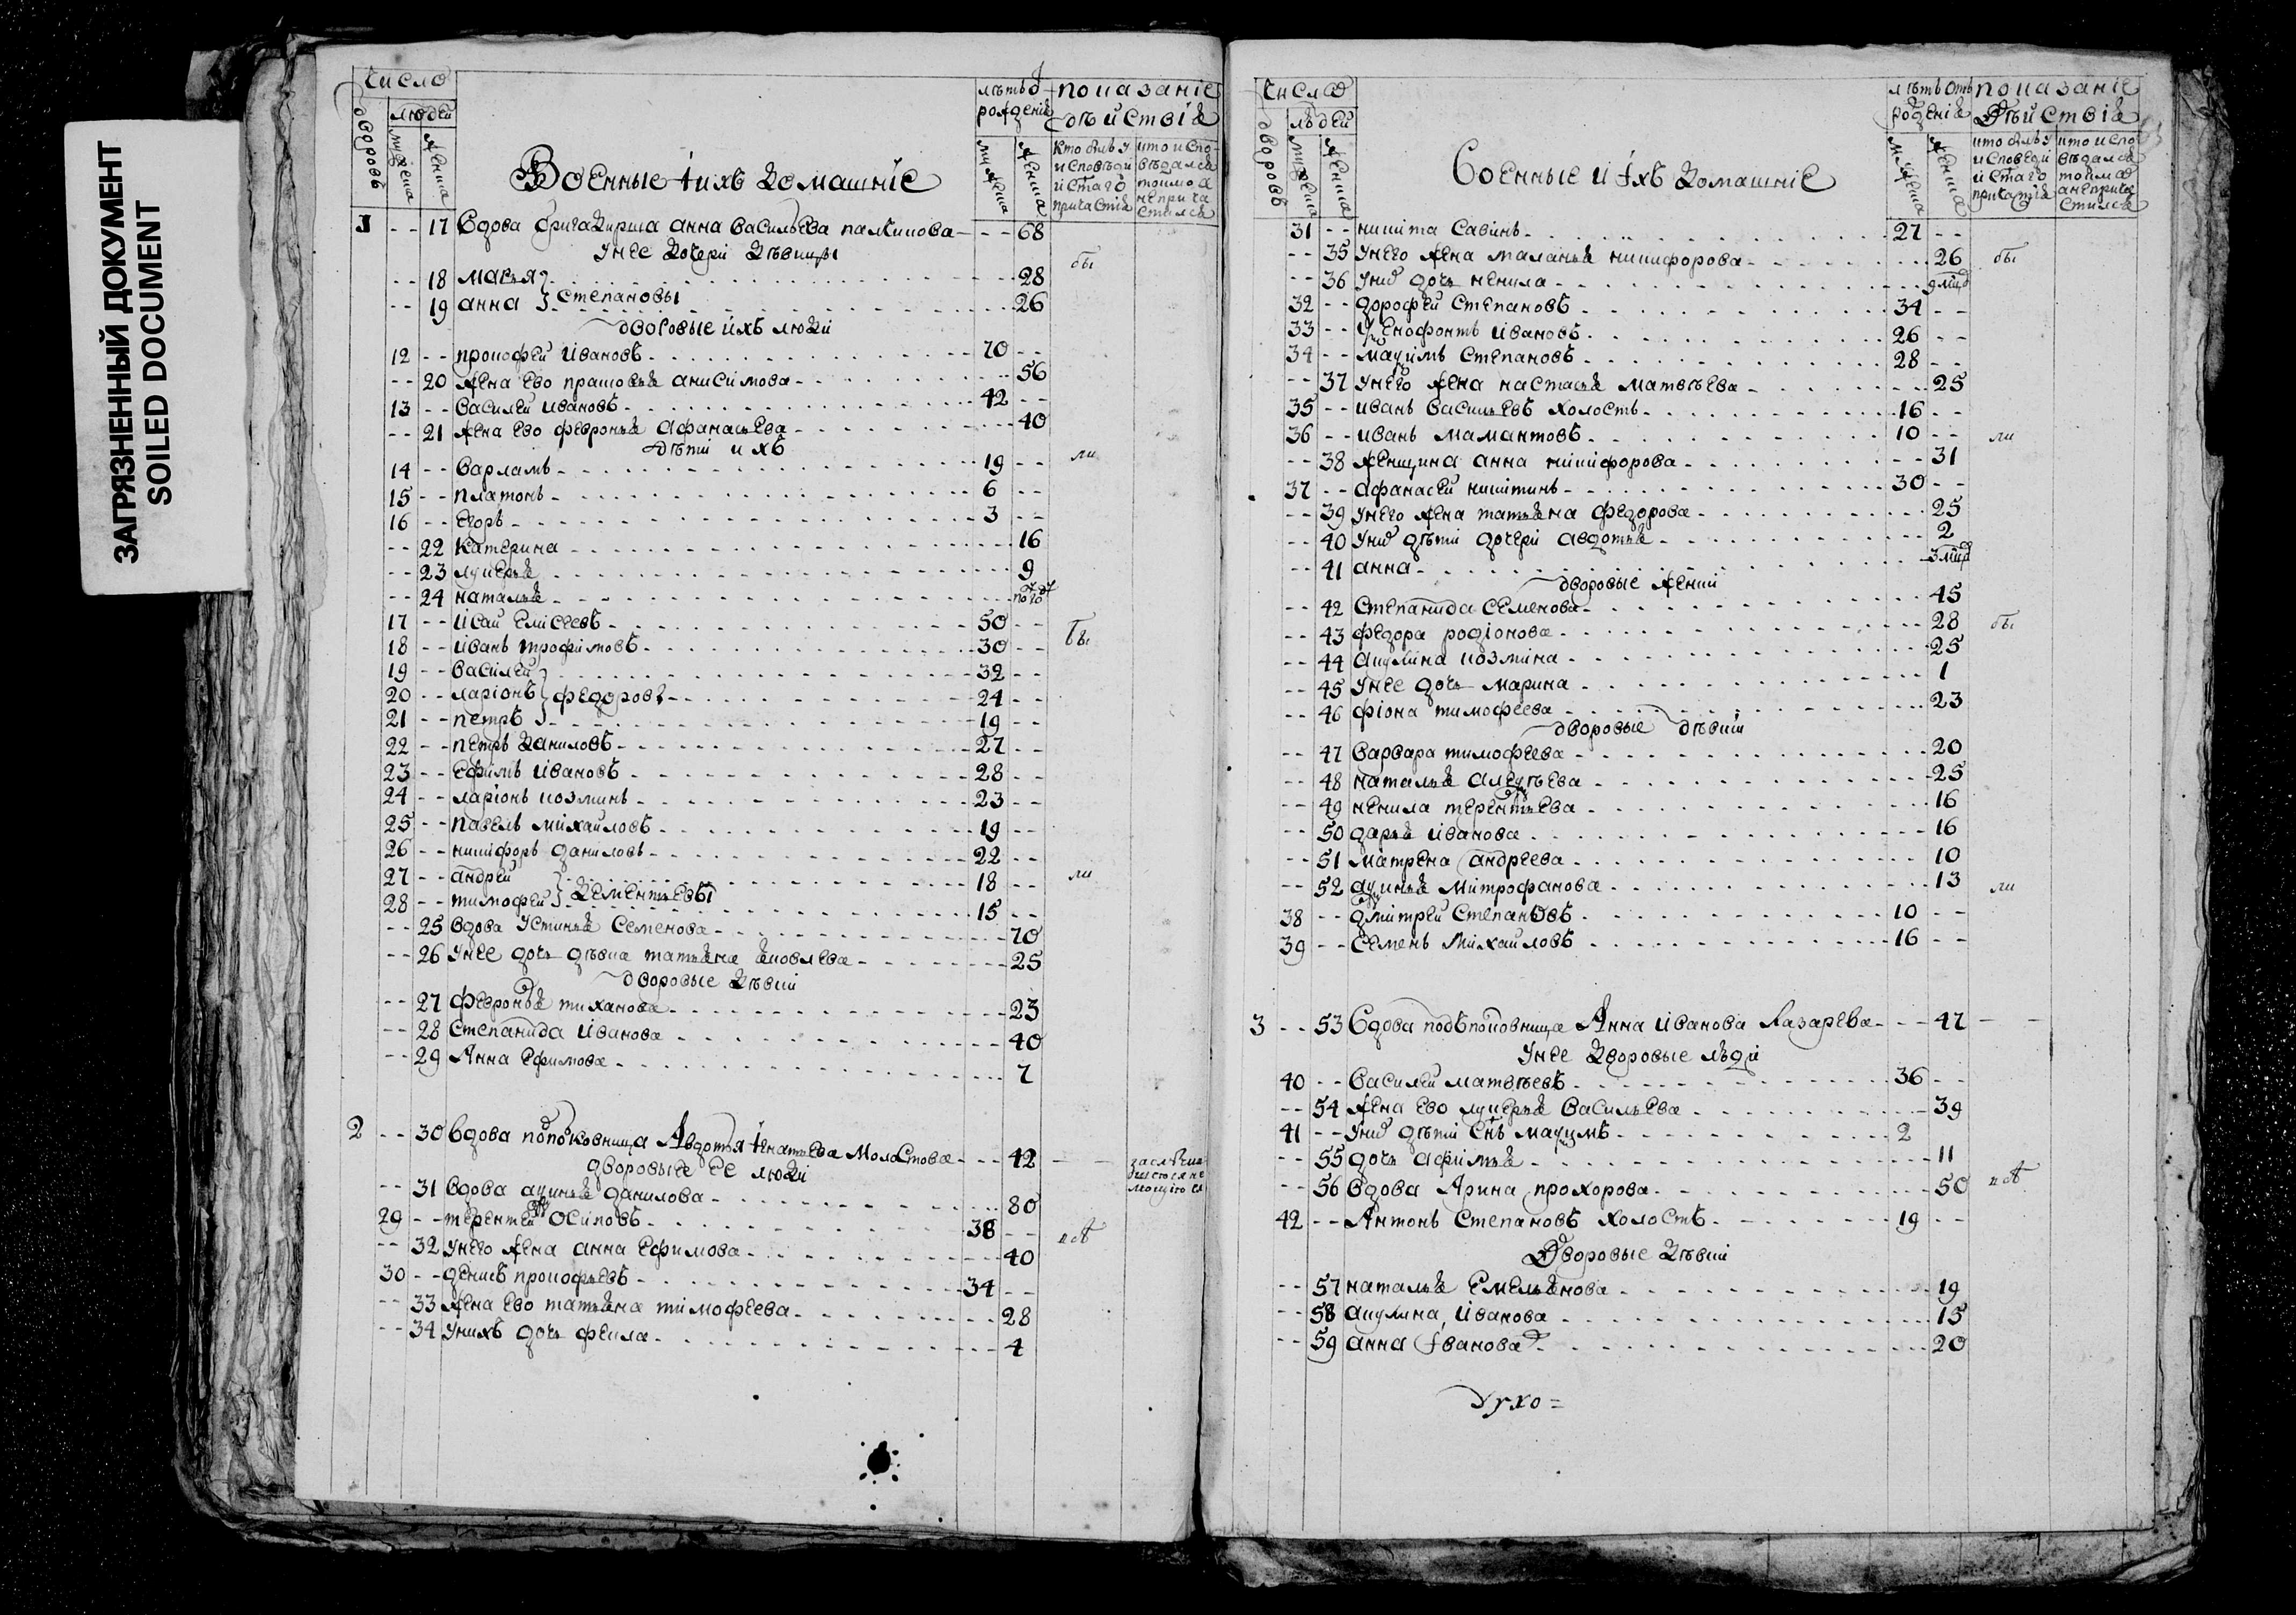 ЗАГРЯЗНЕННЫЙ ДОКУМЕНТ
SOILED DOCUMENT
число
дворовъ
людей
мужеска
женска
Военные ихъ домашніе
лѣтъ
рожденія
показаніе
дѣйствія
мужеска
женска
Кто былъ у
исповѣди
и стаго
причастія
кто испо-
вѣдался
токмо а
не прича
стился
1 -- 17 Вдова бригадирша анна васильева палкинова -- 68
У нее дочери дѣвицы
бы
-- 18 марья 28
-- 19 анна } степановы 26
дворовые ихъ люди
12 -- прокофей ивановъ 70 --
-- 20 жена ево прасковья анисимова 56
13 -- василей ивановъ 42 --
-- 21 жена ево февронья афанасьева 40
дѣти ихъ
ли
14 -- варламъ 19 --
15 -- платонъ 6 --
16 -- егоръ 3 --
-- 22 катерина 16
-- 23 лукерья 9
-- 24 наталья
17 -- исай елисеевъ 50 --
бы
18 -- иванъ трофимовъ 30 --
19 -- василей 32 --
20 -- ларіонъ } федоровы 24 --
21 -- петръ 19 --
22 -- петръ даниловъ 27 --
23 -- ефимъ ивановъ 28 --
24 -- ларіонъ козминъ 23 --
25 -- павелъ михайловъ 19 --
26 -- никифоръ даниловъ 22 --
27 -- андрей 18 --
ли
28 -- тимофей } дементьевы 15 --
-- 25 вдова устинья семенова 70
-- 26 у нее дочь дѣвка татьяна яковлева 25
дворовые дѣвки
-- 27 февронья тиханова 23
-- 28 степанида иванова 40
-- 29 Анна ефимова 7
2 -- 30 вдова полковница Авдотья игнатьева молостова -- 42
дворовые ее люди
-- 31 вдова аксинья данилова 80
29 -- терентей осиповъ 38 --
-- 32 у него жена анна ефимова 40
30 -- денисъ прокофьевъ 34 --
-- 33 жена ево татьяна тимофеева 28
-- 34 у нихъ дочь фекла 4
число
дворовъ
людей
мужеска
женска
военные и ихъ домашніе
лѣтъ отъ
рожденія
показаніе
дѣйствія
мужеска
женска
кто былъ у
исповеди
и стаго
причастія
кто испо
вѣдался
токмо
а не прича
стился
31 -- никита савинъ 27 --
-- 35 у него жена маланья никифорова 26
бы
-- 36 у них дочь ненила
32 -- дорофей степановъ 34 --
33 -- ксенофонтъ ивановъ 26 --
34 -- максимъ степановъ 28 --
-- 37 у него жена настасья матвѣева 25
35 -- иванъ васильевъ холостъ 16 --
36 -- иванъ мамантовъ 10 --
ли
-- 38 женщина анна никифорова 31
37 -- афанасей никитинъ 30 --
-- 39 у него жена татьяна федорова 25
-- 40 у них дѣти дочери авдотья 2
-- 41 анна
дворовые женки
-- 42 степанида семенова 45
-- 43 федора родіонова 28
бы
-- 44 акулина козмина 25
-- 45 у нее дочь марина 1
-- 46 фіона тимофеева 23
дворовые дѣвки
-- 47 варвара тимофеева 20
-- 48 наталья алексѣева 25
-- 49 ненила терентьева 16
-- 50 дарья иванова 16
-- 51 матрена андреева 10
-- 52 аксинья митрофанова 13
ли
38 -- дмитрей степановъ 10 --
39 -- семенъ михайловъ 16 --
3 -- 53 вдова подполковница Анна иванова лазарева -- 47
У нее дворовые люди
40 -- василей матвѣевъ 36 --
-- 54 жена ево лукерья васильева 39
41 -- у них дѣти снъ максимъ 2
-- 55 дочь афимья 11
-- 56 вдова Арина прохорова 50
42 -- Антонъ степановъ холостъ 19 --
Дворовые дѣвки
-- 57 наталья емельянова 19
-- 58 акулина иванова 15
-- 59 анна иванова 20
духо=